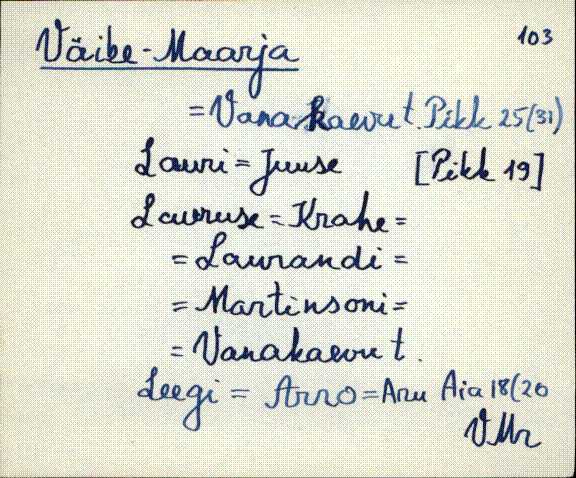 Väike-Maarja 103
= Vanakaevu t. Pikk 25(31)
Lauri = Juuse [Pikk 19]
Lauruse = Krahe =
= Laurandi =
= Martinsoni =
= Vanakaevu t.
Leegi = Arro = Aru Aia 18(20
VMr